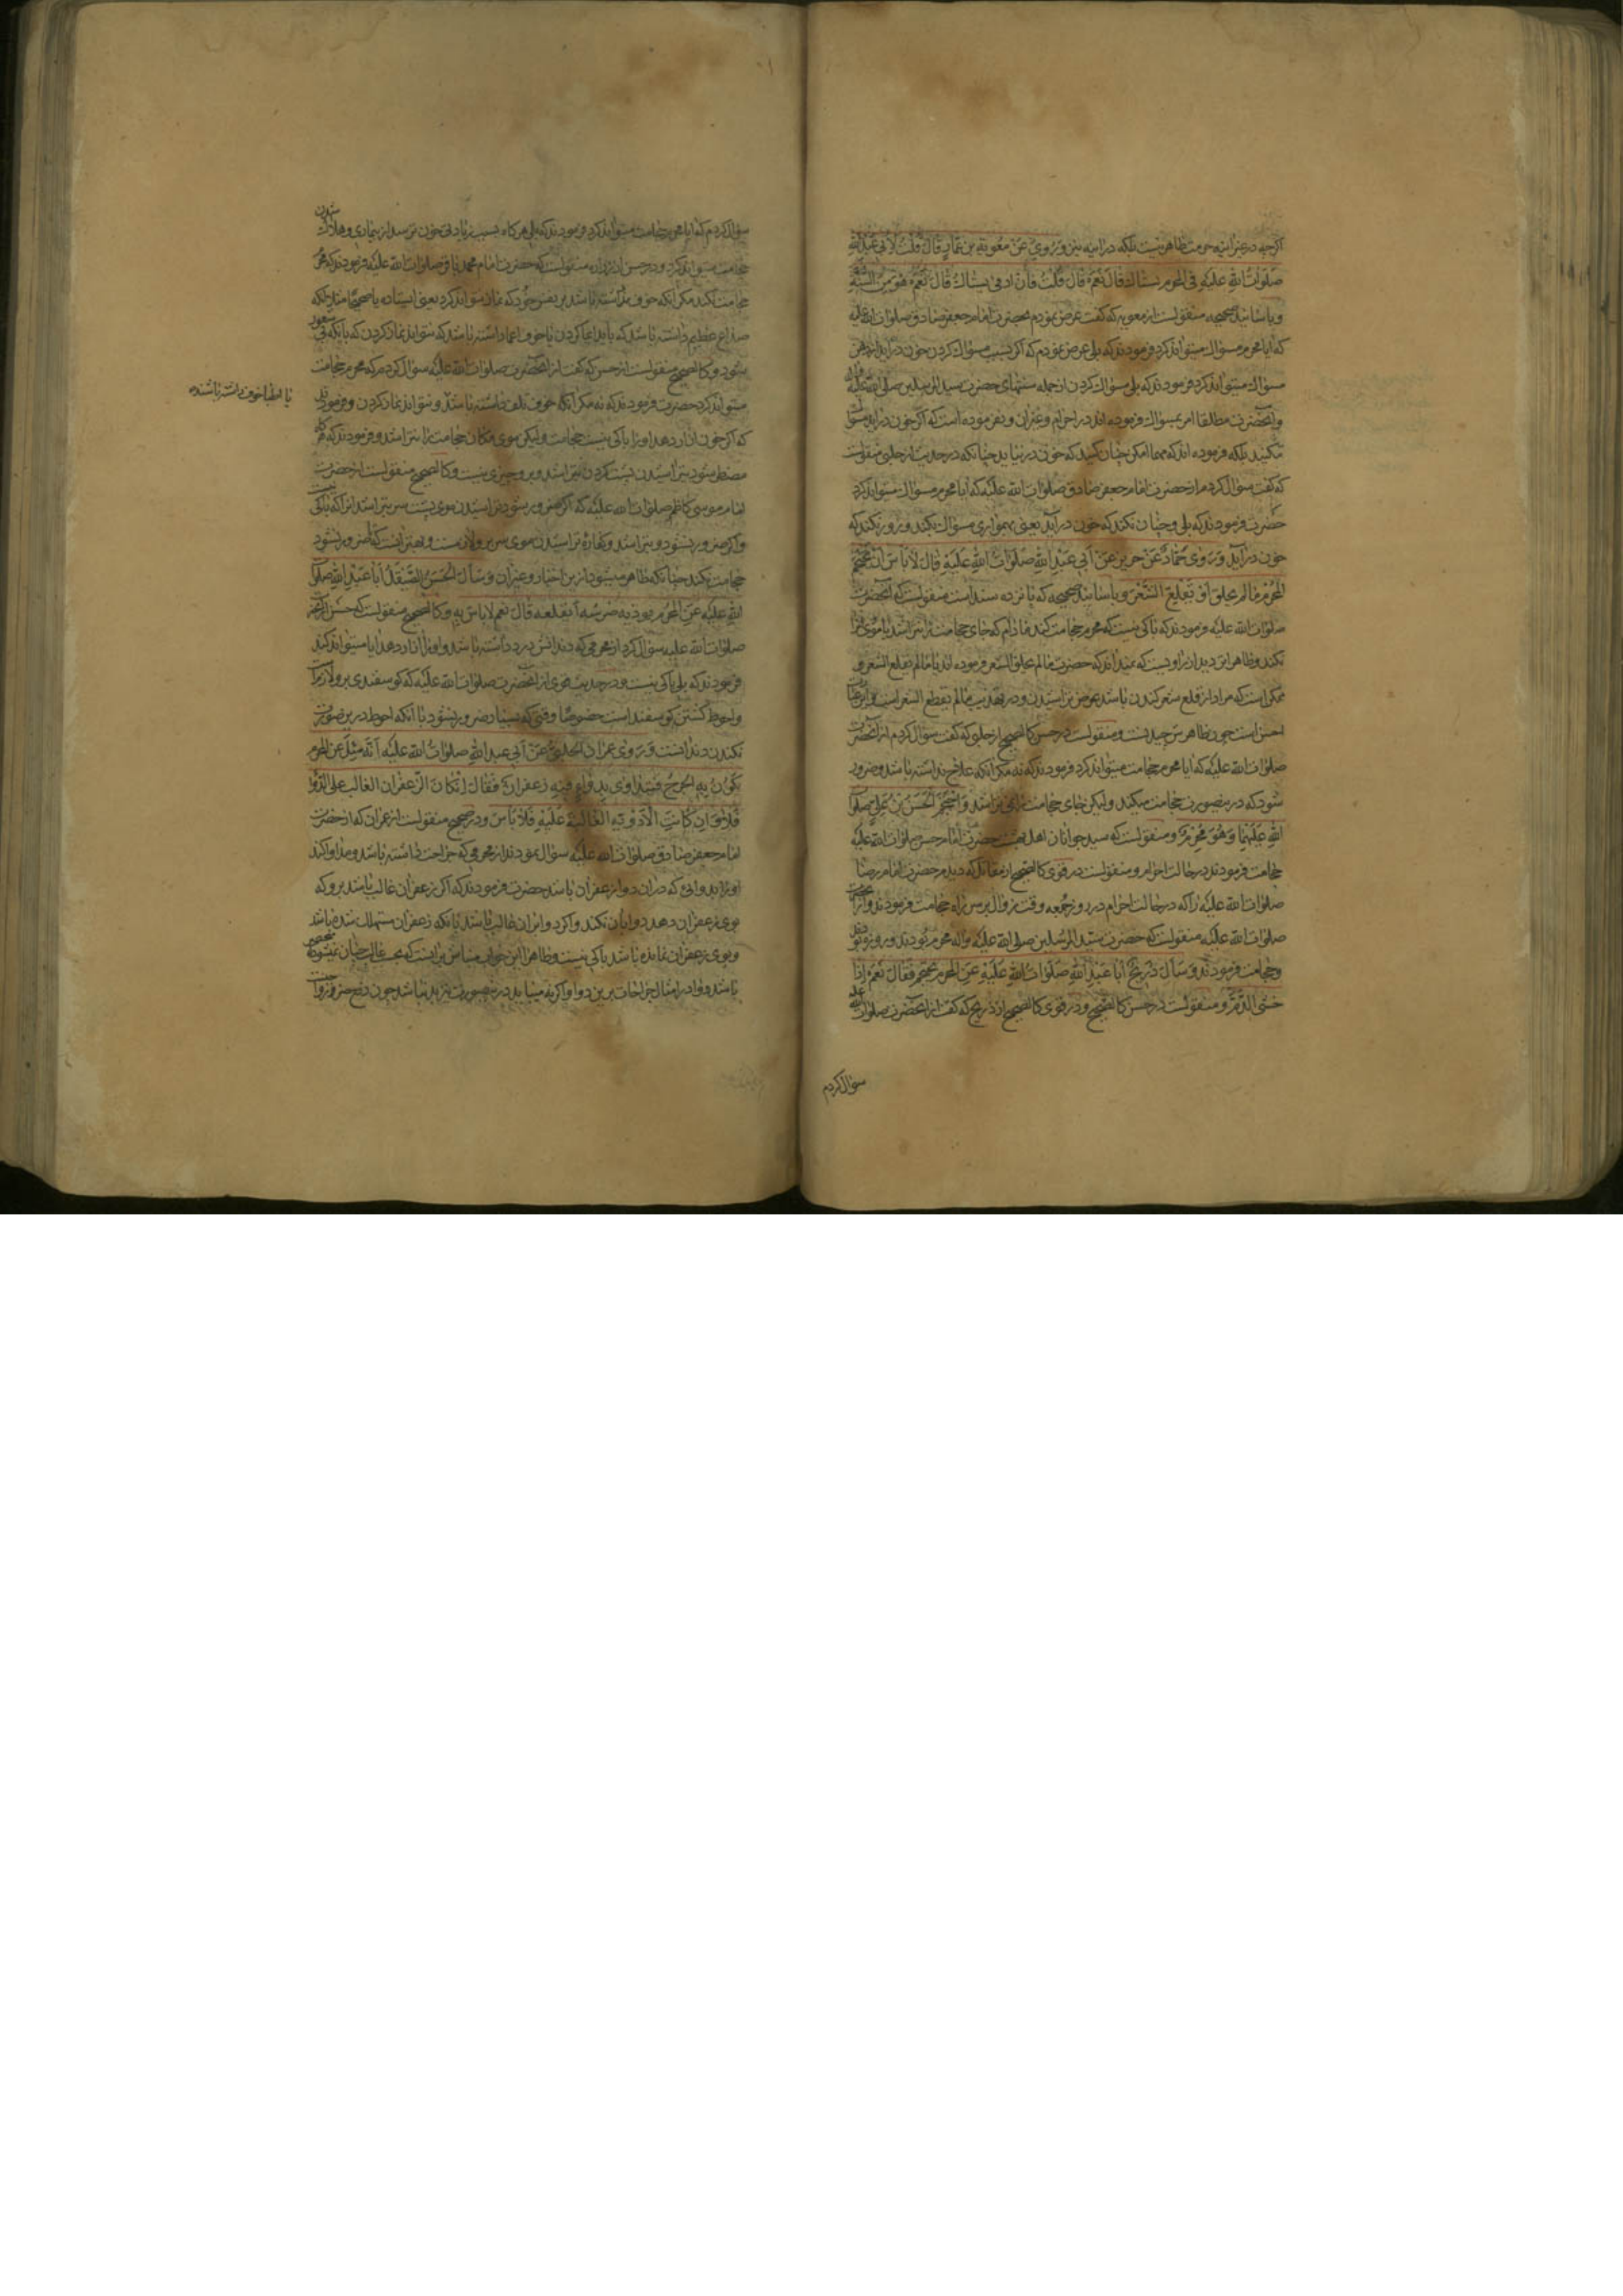 اکرچه در غیر اینه حرمت ظاهر نیست بلکه در اینه نیز وَرُوِیَ عَنْ مُعٰوِیَةَ بنِ عَمّارٍ قالَ قُلْتُ لِاَبی عَبْدِ اللهِ
صَلَواتُ اللهِ عَلَیْهِ فی المُحْرِمِ یَسْتاكُ قالَ نَعَمْ قالَ قُلْتُ فَاِنْ اَدْمیٰ یَسْتاكُ قالَ نَعَمْ هُوَ مِنَ السُّنَّةِ
و باسانید صحیحه منقولست از معویه که کفت عرض نمودم بحضرت امام جعفر صادق صلوات الله علیه
که ایا محرم مسواك میتواند کرد فرمودند که بلی عرض نمودم که اکر بسبب مسواك کردن خون درآید از دهن
مسواك میتواند کرد فرمودند که بلی مسواك کردن از جمله سنتهای حضرت سید المرسلین صلی الله علیه
وآنحضرت مطلقا امر بمسواك فرموده اند در احرام و غیر آن و نفرموده است که اکر خون درآید مسواك
مکنید بلکه فرموده اند که مهما امکن چنان کنید که خون در نیاید چنانکه در حدیث از حلبی منقولست
که کفت سؤال کردم از حضرت امام جعفر صادق صلوات الله علیه که ایا محرم مسواك میتواند کرد
حضرت فرمودند که بلی و چنان نکند که خون درآید یعنی بهمواری مسواك بکند و زور نکند که
خون درآید وَرَویٰ حَمّادٌ عَنْ حَریزٍ عَنْ اَبی عَبْدِ اللهِ صَلَواتُ اللهِ عَلَیْهِ قالَ لا بَاسَ اَنْ یَحْتَجِمَ
المُحْرِمُ مٰا لَمْ یَحْلِقْ اَوْ یَقْلَعِ الشَّعْرَ و باسانید صحیحه که پانزده سند است منقولست که آنحضرت
صلوات الله علیه فرمودند که باکی نیست که محرم حجامت کند مادام که جای حجامت را نتراشد یا موی را
نکند و ظاهر این تردید از راویست که نمیداند که حضرت مالم یحلق الشعر فرموده اند یا مالم یقلع الشعر و
ممکن است که مراد از قلع شعر کندن باشد بعوض تراشیدن و در تهذیب مالم یقطع الشعر است و این
احسن است چون ظاهرش چیدنست و منقولست در حسن کالصحیح از حلبی که کفت سؤال کردم از آنحضرت
صلوات الله علیه که ایا محرم حجامت میتواند کرد فرمودند که نه مکر آنکه علاج نداشته باشد و ضرور
شود که درینصورت حجامت میکند ولیکن جای حجامت را نمی تراشد وَاحْتَجَمَ الْحَسَنُ بْنُ عَلِیٍّ صَلَوات
اللهِ عَلَیْهِمٰا وَهُوَ مُحْرِمٌ و منقولست که سید جوانان اهل بهشت حضرت امام حسن صلوات الله علیه
حجامت فرمودند در حالت احرام و منقولست در قوی کالصحیح از مقاتل که دیدم حضرت امام رضا
صلوات الله علیه را که در حالت احرام در روز جمعه وقت زوال بر سر راه حجامت فرمودند و از آنحضرت
صلوات الله علیه منقولست که حضرت سید المرسلین صلی الله علیه وآله محرم بودند و روزه بودند
وحجامت فرمودند وَ سَأَلَ ذَرِیحٌ اَبا عَبْدِ اللهِ صَلَواتُ اللهِ عَلَیْهِ عَنِ المُحْرِمِ یَحْتَجِمُ فَقٰالَ نَعَمْ اِذا
خَشِیَ الدَّمَ و منقولست در حسن کالصحیح و در قوی کالصحیح از ذریح که کفت از آنحضرت صلوات الله علیه
سؤال کردم
سؤال کردم که ایا محرم حجامت میتواند کرد فرمودند که بلی هرکاه بسبب زیادتی خون ترسد از بیماری و هلاك شدن
حجامت میتواند کرد و در حسن از زراره منقولست که حضرت امام محمد باقر صلوات الله علیه فرمودند که محرم
حجامت نکند مکر آنکه خوف داشته باشد بر نفس خود که نماز نتواند کرد یعنی ایستاده یا صحیحا مثل آنکه
صداع عظیم داشته باشد که باید ایما کردن یا خوف اغما داشته باشد که نتواند نماز کردن که یا آنکه بی شعور
شود و کالصحیح منقولست از حسن که کفت از آنحضرت صلوات الله علیه سؤال کردم که محرم حجامت
یا اطبا خوف داشته باشند
میتواند کرد حضرت فرمودند که نه مکر آنکه خوف تلف داشته باشد و نتواند نماز کردن و فرمودند
که اکر خون آزار دهد او را باکی نیست حجامت ولیکن موی مکان حجامت را نتراشد و فرمودند که هرکاه
مضطر شود بتراشیدن پشت کردن بتراشد و برو چیزی نیست و کالصحیح منقولست از حضرت
امام موسی کاظم صلوات الله علیه که اکر ضرور شود تراشیدن موی پشت سر بتراشد انرا که باکی نیست
و اکر ضرور نشود و بتراشد کفارهٔ تراشیدن موی سر برو لازمست و بهتر آنست که تا ضرور نشود
حجامت نکند چنانکه ظاهر میشود از این اخبار و غیر آن وَسَأَلَ الْحَسَنُ الصَّیْقَلُ اَبا عَبْدِ اللهِ صَلَوات
اللهِ عَلَیْهِ عَنِ المُحْرِمِ یُوذیهِ ضِرسُه اَیَقْلَعه قالَ نَعَم لا باس بِهِ و کالصحیح منقولست که حسن از آنحضرت
صلوات الله علیه سؤال کرد از محرمی که دندانش درد داشته باشد و او را آزار دهد ایا میتواند کند
فرمودند که بلی باکی نیست و در حدیث قوی از آنحضرت صلوات الله علیه که کوسفندی برو لازم است
و احوط کشتن کوسفند است خصوصا وقتی که بسیار ضرور نشود با آنکه احوط درین صورت
نکندن دندانست وَرَویٰ عمران الحلبیُّ عَنْ اَبی عبدِ اللهِ صلواتُ الله عَلَیْهِ اَنَّه سُئِلَ عَنِ المُحْرِمِ
یَکُونُ بِهِ الجُرْحُ فَیَتَداویٰ بِدَواءٍ فیهِ زَعفرانٌ فَقٰالَ اِنْ کانَ الزَّعفَران الغالب عَلَی الدَّواءِ
فَلا وَاِن کانَتِ الْاَدْوِیَةُ الغٰالِبَةَ عَلَیْهِ فَلا بَأسَ و در صحیح منقولست از عمران که از حضرت
امام جعفر صادق صلوات الله علیه سؤال نمودند از محرمی که جراحت داشته باشد و مداوا کند
او را بدوائی که در آن دوا زعفران باشد حضرت فرمودند که اکر زعفران غالب باشد برو که
بوی زعفران دهد دوا بآن نکند و اکر دوا بر آن غالب باشد بآنکه زعفران مستهلك شده باشد
و بوی زعفران نمانده باشد باکی نیست و ظاهرا این جواب
باشد و دوا در امثال جراحات برین دوا و اکر نه میباید درینصورت نیز بد نباشد چون دفع ضرر